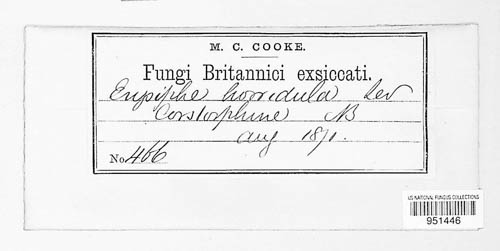 M. C. COOKE.
Fungi Britannici exsiccati.
Erysiphe horridula Lev
Corstorphine NB
Aug 1871.
No. 466
US NATIONAL FUNGUS COLLECTIONS
951446